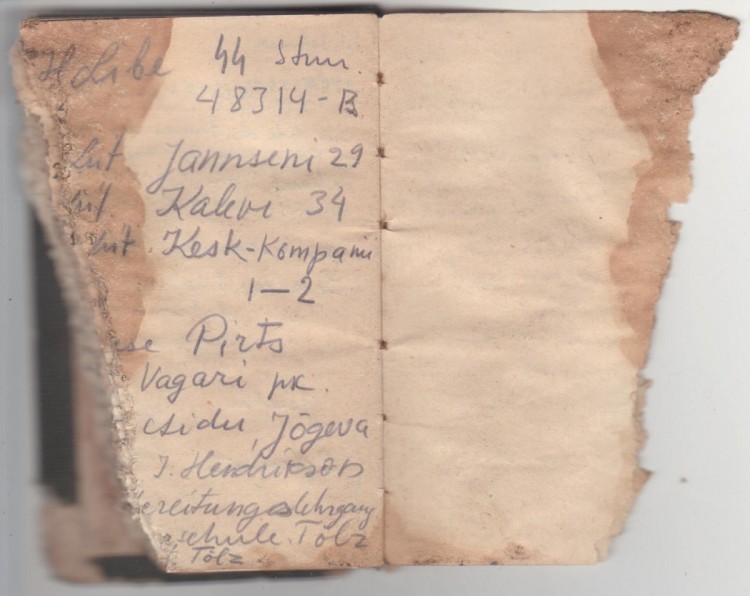 H Libe 44 Stm.
48314-B
Lut Jannseni 29
Lut. Kalevi 34
Lut. Kesk-Kompanii
1-2
Pirts
Vagari pk.
Jõgeva
J. Hendrikson
ereitungslehrgang
schule Tölz
Tölz